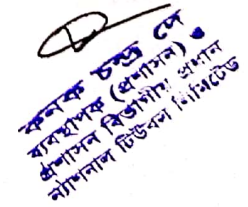 কনক চন্দ্র দে
ব্যবস্থাপক (প্রশাসন)
প্রশাসন বিভাগীয় প্রধান
ন্যাশনাল টিউবস লিমিটেড